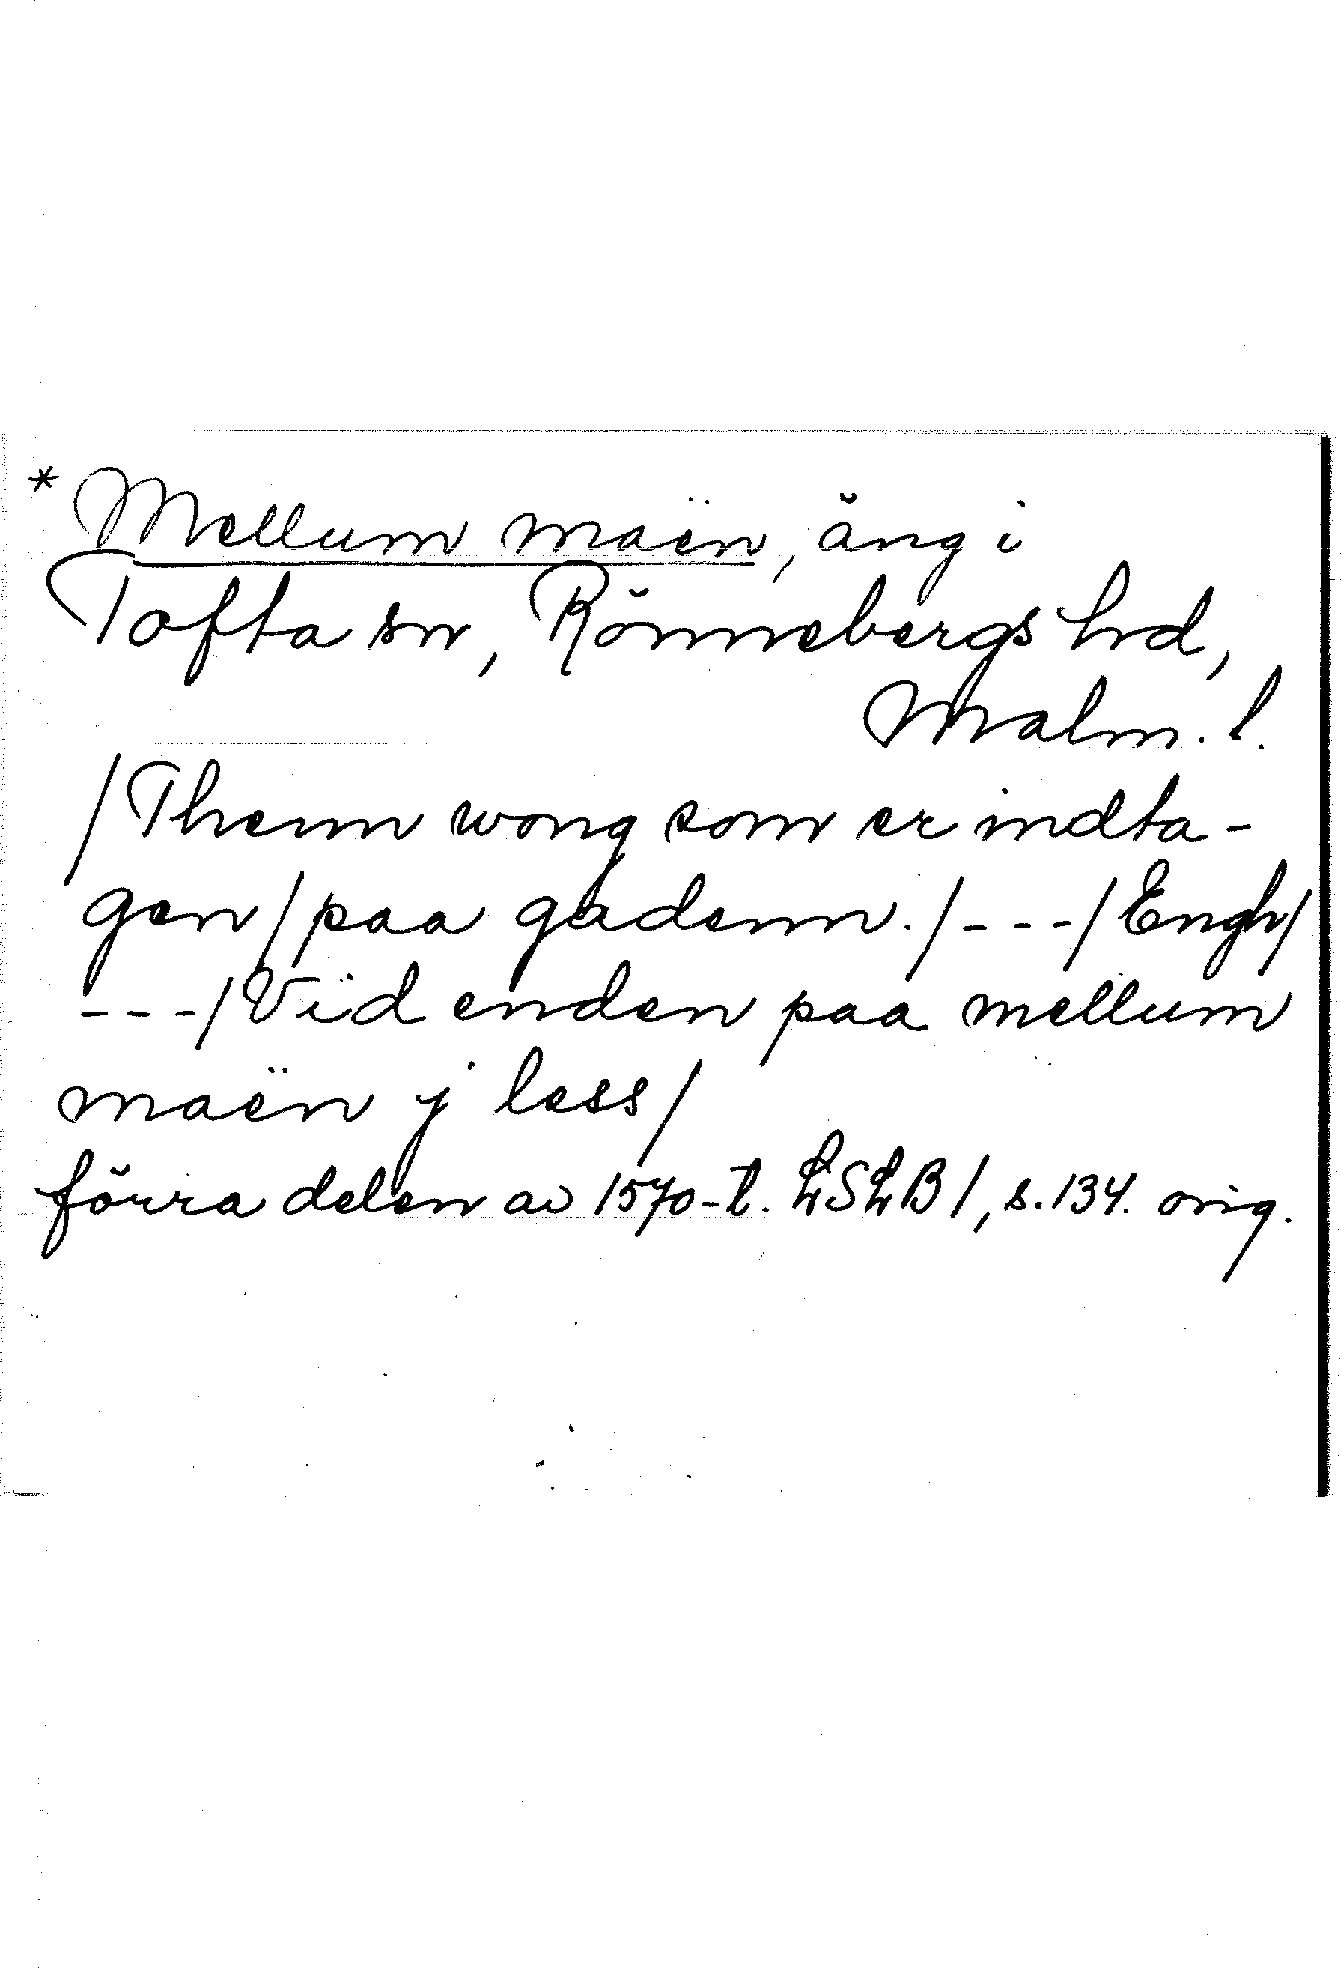 * Mellum maën, äng i
Tofta sn, Rönnebergs hd,
Malm. l.
/Thenn wong som er indta-
gen/paa gadenn./---/Engh/
---/Vid enden paa mellum
maën jless/
förra delen av 1570-t. LSLB 1, s. 134. orig.